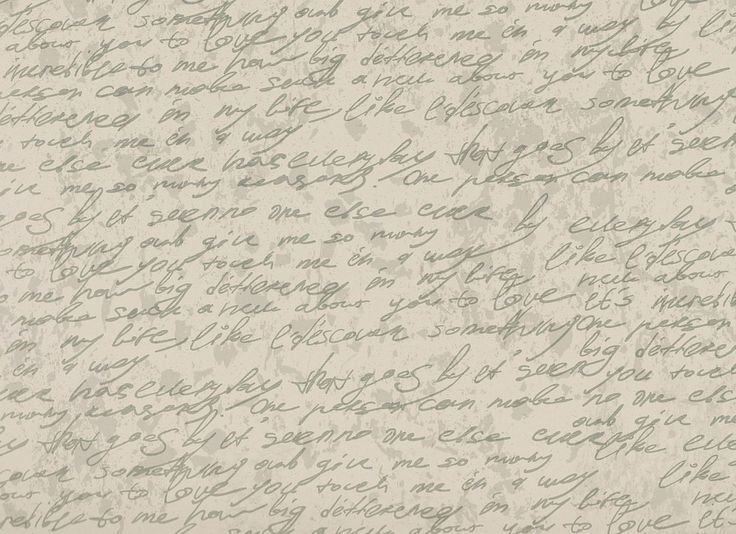 discover something and give me so many love
about you to love you touch me in a way by li
incredible to me how big difference in my life
person can make such a new about you to love
difference in my life, like I discover something
u touch me in a way
ne else ever has everyday that goes by it's seem
ive me so many reasons. One person can make a
goes by it's seem no one else ever by everyday
something and give me so many
to love you touch me in a way like I discover
o me how big difference in my life new about
make such a new about you to love it's incredib
in my life, like I discover something One person
e in a way big difference
ever has everyday that goes by it's seem you touch
many reasons. One person can make no one else
and give me
by that goes by it's seem no one else ever like every
discover something and give me so many
about you to love you touch me in a way like
credible to me how big difference in my life ne
such a new about you to love it's